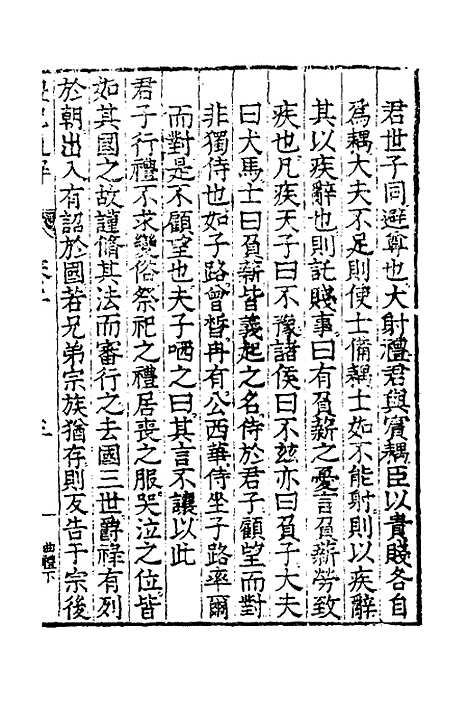 君世子同避尊也大射禮君與賓耦臣以貴賤各自
爲耦大夫不足則使士備耦士如不能射則以疾辭
其以疾辭也則託賤事曰有負薪之憂言負薪勞致
疾也凡疾天子曰不豫諸侯曰不玆亦曰負子大夫
曰犬馬士曰負薪皆義起之名侍於君子顧望而對
非獨侍也如子路曾晳冉有公西華侍坐子路率爾
而對是不顧望也夫子哂之曰其言不讓以此
君子行禮不求變俗祭祀之禮居喪之服哭泣之位皆
如其國之故謹脩其法而審行之去國三世爵祿有列
於朝出入有詔於國若兄弟宗族猶存則反告于宗後
三
曲禮下